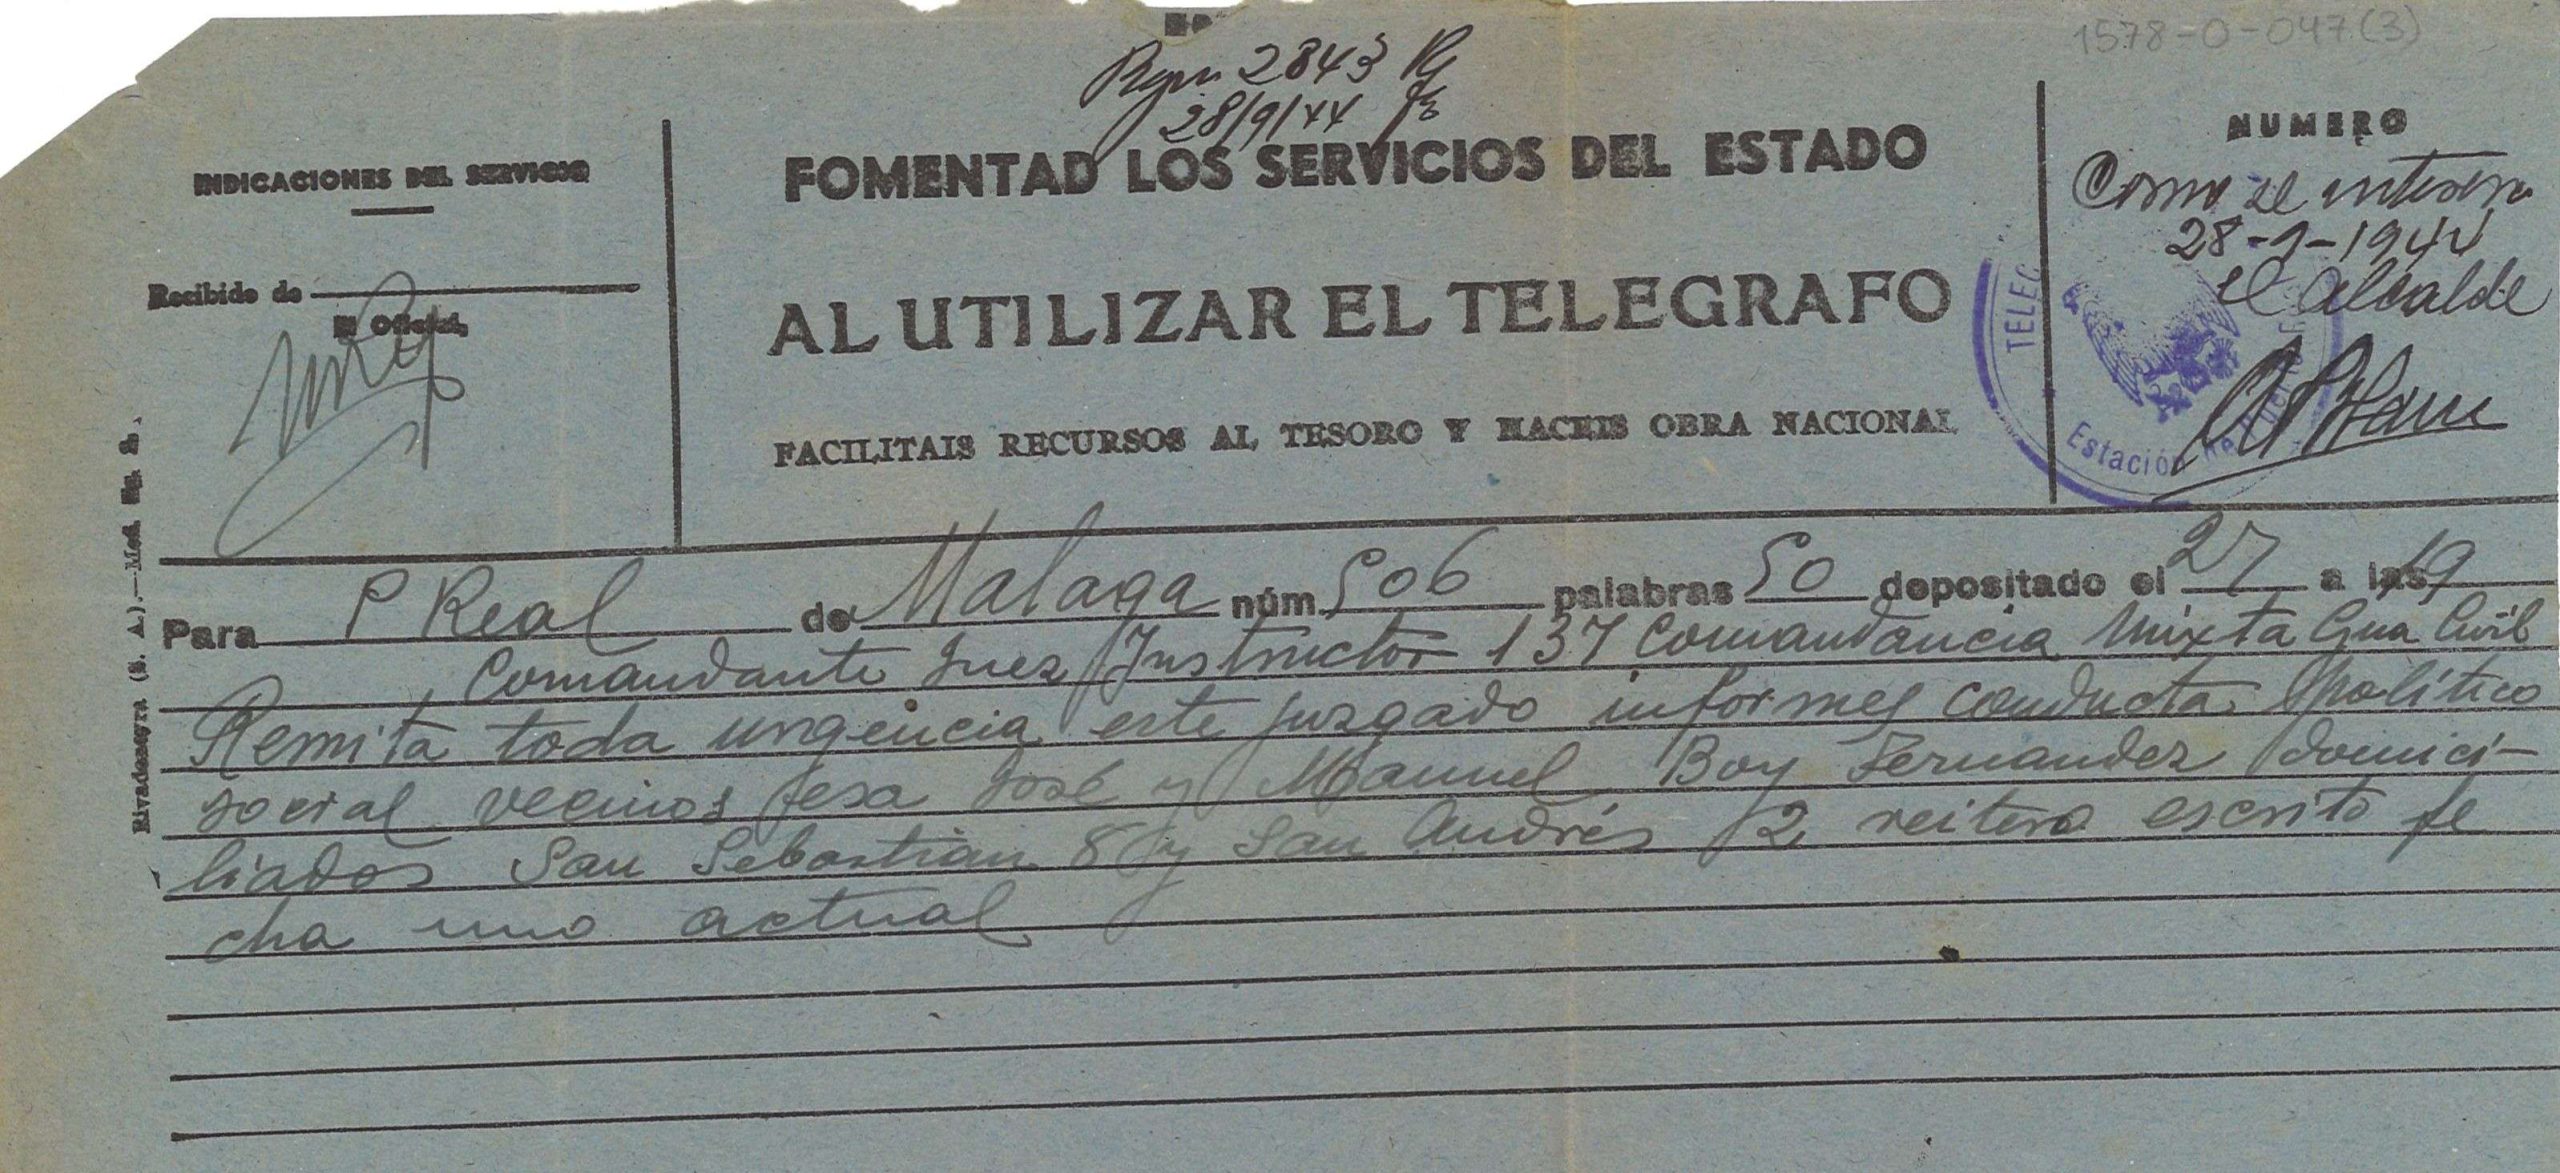 1578-0-047(3)
2843
28/9/44
INDICACIONES DEL SERVICIO
Recibido de
El Oficial,
FOMENTAD LOS SERVICIOS DEL ESTADO
AL UTILIZAR EL TELEGRAFO
FACILITAIS RECURSOS AL TESORO Y HACEIS OBRA NACIONAL
NUMERO
Como se interesa
28-9-1944
el Alcalde
TELEG
Estación de
Rivadeneyra (S. A.).—Mod.
Para P Real de Malaga núm. 506 palabras 50 depositado el 27 a las 19
Comandante Juez Instructor 137 Comandancia Mixta Gua Civil
Remita toda urgencia este juzgado informes conducta politico
social vecinos esa José y Manuel Boy Fernandez domici-
liados San Sebastian 8 y San Andrés 12 reitero escrito fe
cha uno actual